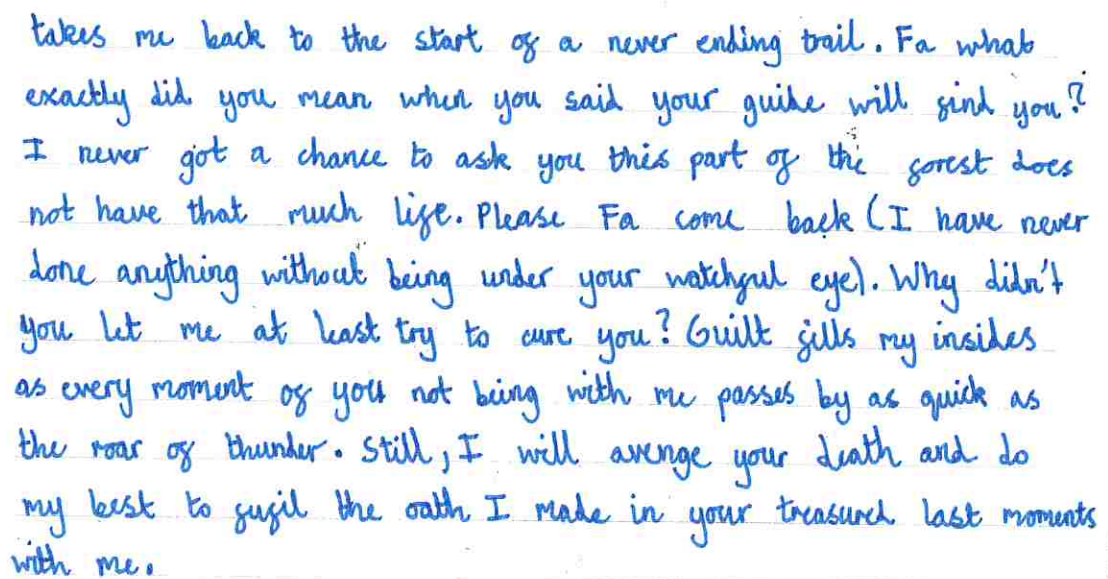 takes me back to the start of a never ending trail. Fa what
exactly did you mean when you said your guide will find you?
I never got a chance to ask you this part of the forest does
not have that much life. Please Fa come back (I have never
done anything without being under your watchful eye). Why didn't
you let me at least try to cure you? Guilt fills my insides
as every moment of you not being with me passes by as quick as
the roar of thunder. Still, I will avenge your death and do
my best to fufil the oath I made in your treasured last moments
with me.